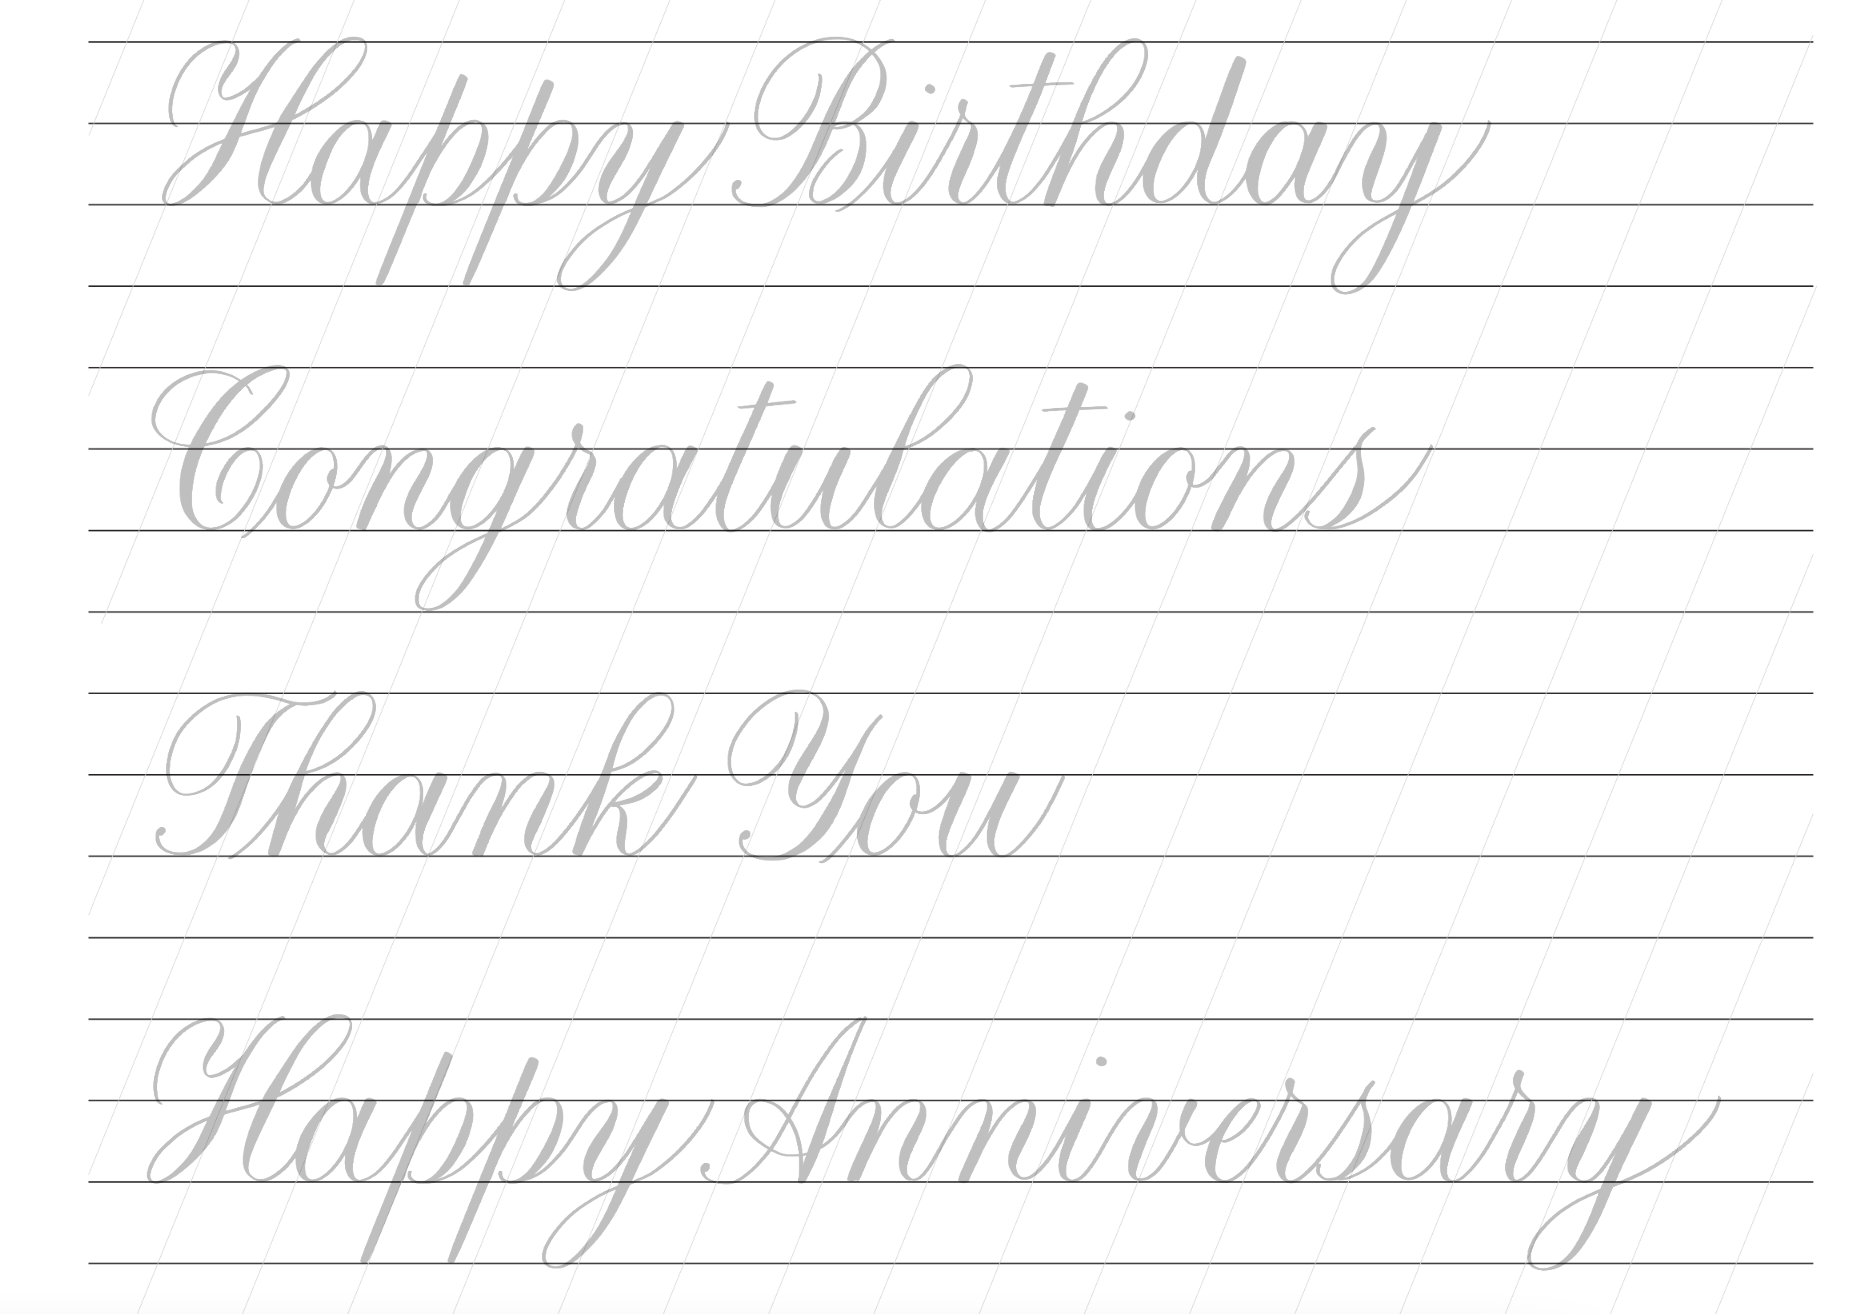 Happy Birthday
Congratulations
Thank You
Happy Anniversary